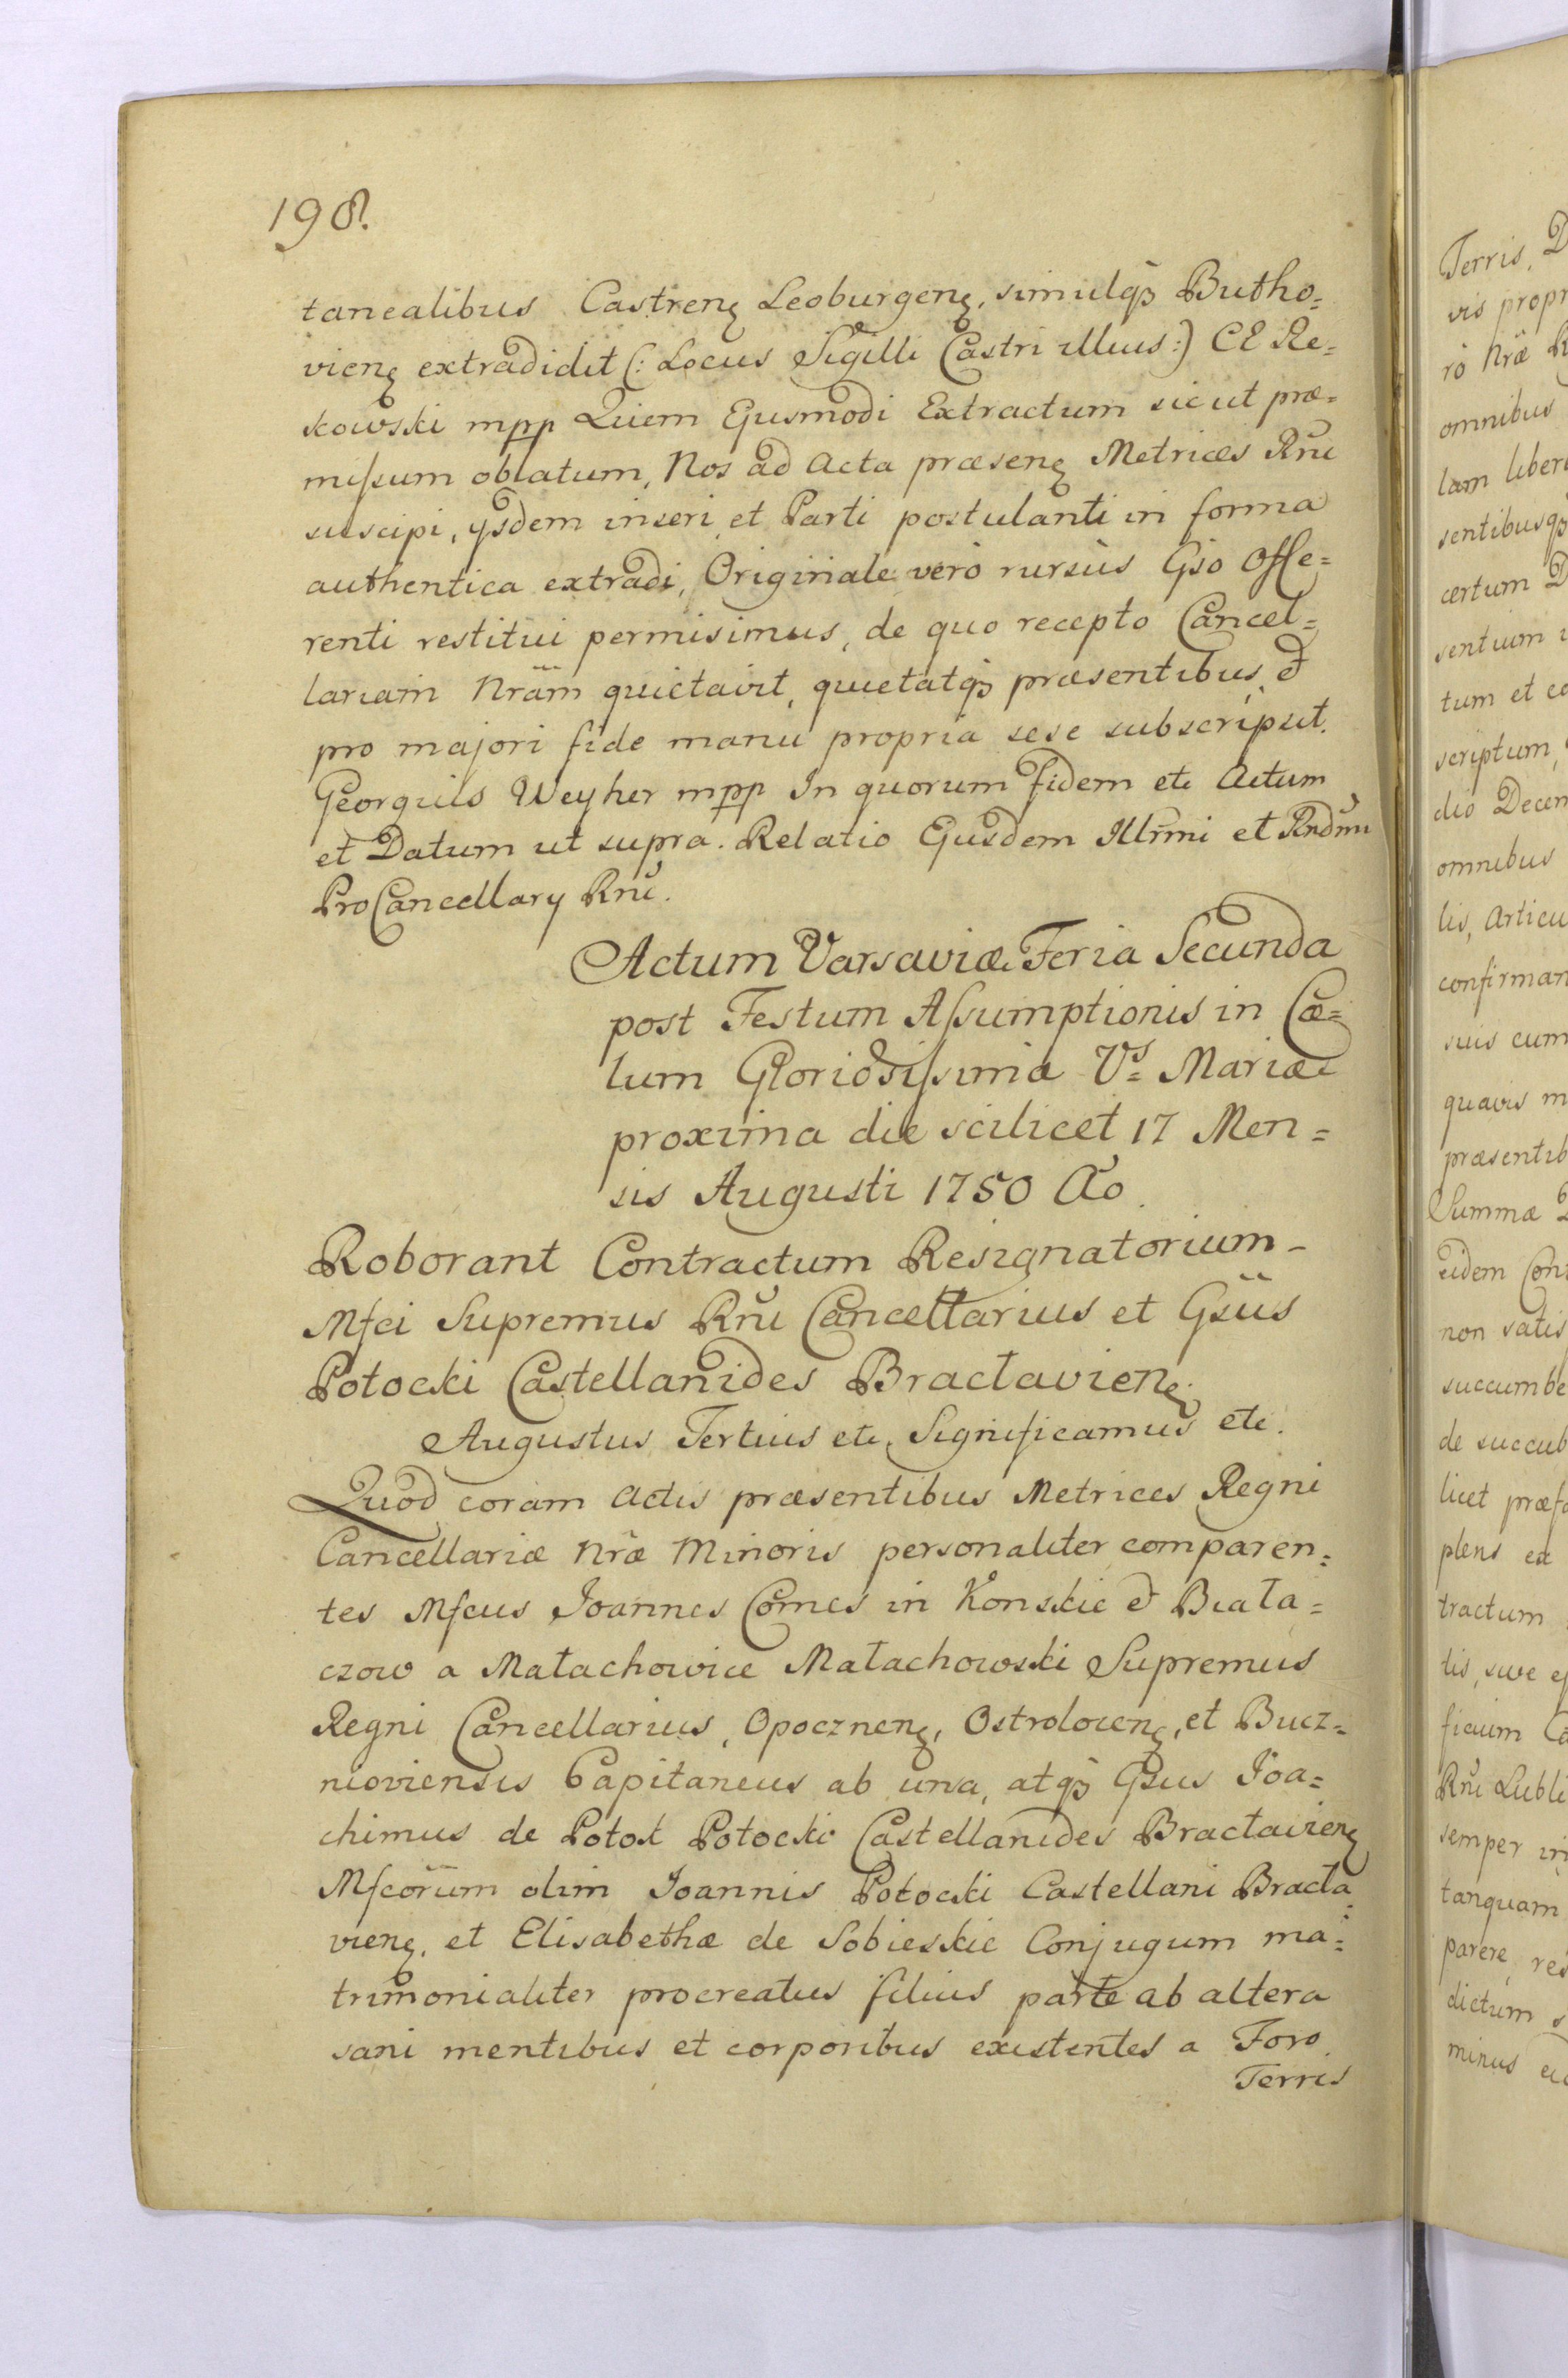 198.
tanealibus Castrenς Leoburgenς, simulqꝫ Butho=
vienς extradidit (: Locus Sigilli Castri illius:) CE Re=
skowski mpp Quem Ejusmodi Extractum sicut præ=
missum oblatum, Nos ad Acta præsenς Metrices Rni
suscipi, ysdem inseri, et Parti postulanti in forma
authentica extradi, Originale verò rursùs Gso Offe=
renti restitui permisimus, de quo recepto Cancel=
lariam Nrãm quietavit, quietatqꝫ præsentibus, &
pro majori fide manu propria sese subscripsit.
Georgius Weyher mpp In quorum fidem etc Actum
et Datum ut supra. Relatio Ejusdem Illrmi et Rndmi
ProCancellary Rni.
Actum Varsaviæ Feria Secunda
post Festum Assumptionis in Cæ=
lum Gloriosissimæ Vs= Mariæ
proxima die scilicet 17 Men=
sis Augusti 1750 Ao.
Roborant Contractum Resignatorium -
Mfci Supremus Rni Cancellarius et Gsus
Potocki Castellanides Bractavienς.
Augustus Tertius etc. Significamus etc.
Quod coram Actis præsentibus Metrices Regni
Cancellariæ Nræ Minoris personaliter comparen=
tes Mfcus Joannes Comes in Konskie & Biała=
czow a Małachowice Małachowski Supremus
Regni Cancellarius, Opocznenς, Ostrolocenς, et Bucz=
nioviensis Capitaneus ab una, atqꝫ Gsus Joa=
chimus de Potok Potocki Castellanides Bractavienς
Mfcorum olim Joannis Potocki Castellani Bracta=
vienς, et Elisabethæ de Sobieskie Conjugum ma=
trimonialiter procreatus filius parte ab altera
sani mentibus et corporibus existentes a Foro
Terris
Terris, D
vis propr
rò Nræ R
omnibus
lam liber
sentibusqꝫ
certum D
sentium
tum et co
scriptum,
dio Decem
omnibus
lis, Articu
confirman
suis cum
quavis m
præsentib
Summæ
eidem Con
non satis
succumbe
de succub
licet præfa
plens ex
tractum
tis, sive ej
ficium Ca
Rni Lubli
semper in
tanquam
parere, res
dictum s
minus